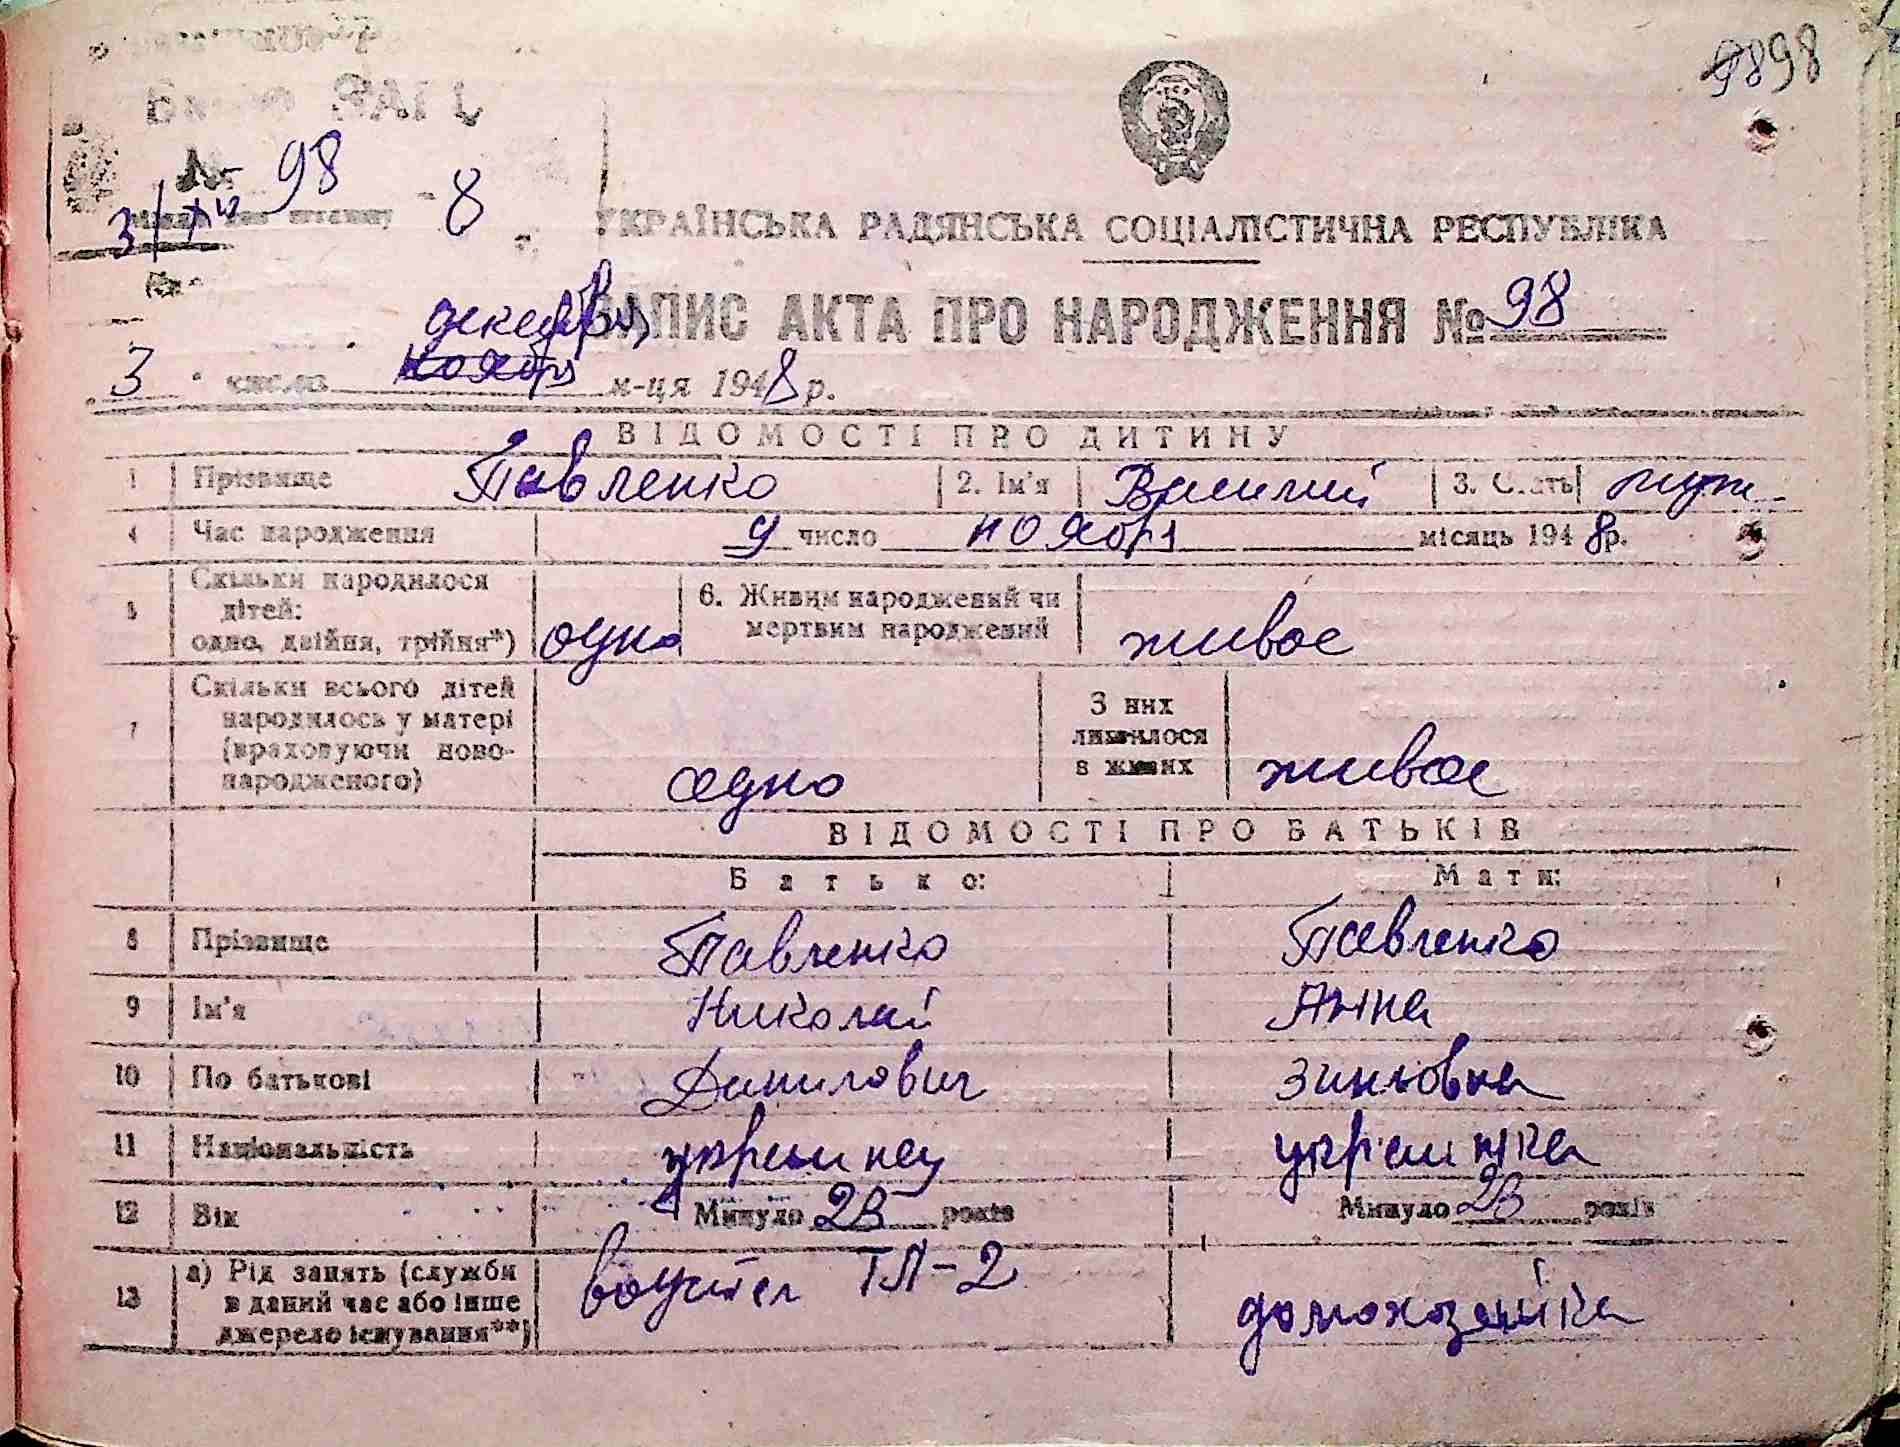 9898
Бюро ЗАГС
№ 98
3/XII -8
УКРАЇНСЬКА РАДЯНСЬКА СОЦІАЛІСТИЧНА РЕСПУБЛІКА
ЗАПИС АКТА ПРО НАРОДЖЕННЯ № 98
декабря
3 число ноября м-ця 1948 р.
ВІДОМОСТІ ПРО ДИТИНУ
1 Прізвище Павленко 2. Ім'я Василий 3. Стать муж
4 Час народження 9 число ноября місяць 1948 р.
5 Скільки народилося дітей: одно, двійня, трійня*) одно 6. Живим народжений чи мертвим народжений живое
7 Скільки всього дітей народилось у матері (враховуючи новонародженого) одно З них лишилося в живих живое
ВІДОМОСТІ ПРО БАТЬКІВ
Батько: Мати:
8 Прізвище Павленко Павленко
9 Ім'я Николай Анна
10 По батькові Данилович Зиновна
11 Національність украинец украинка
12 Вік Минуло 23 років Минуло 23 років
13 а) Рід занять (служби в даний час або інше джерело існування**) ТЛ-2 домохозяйка